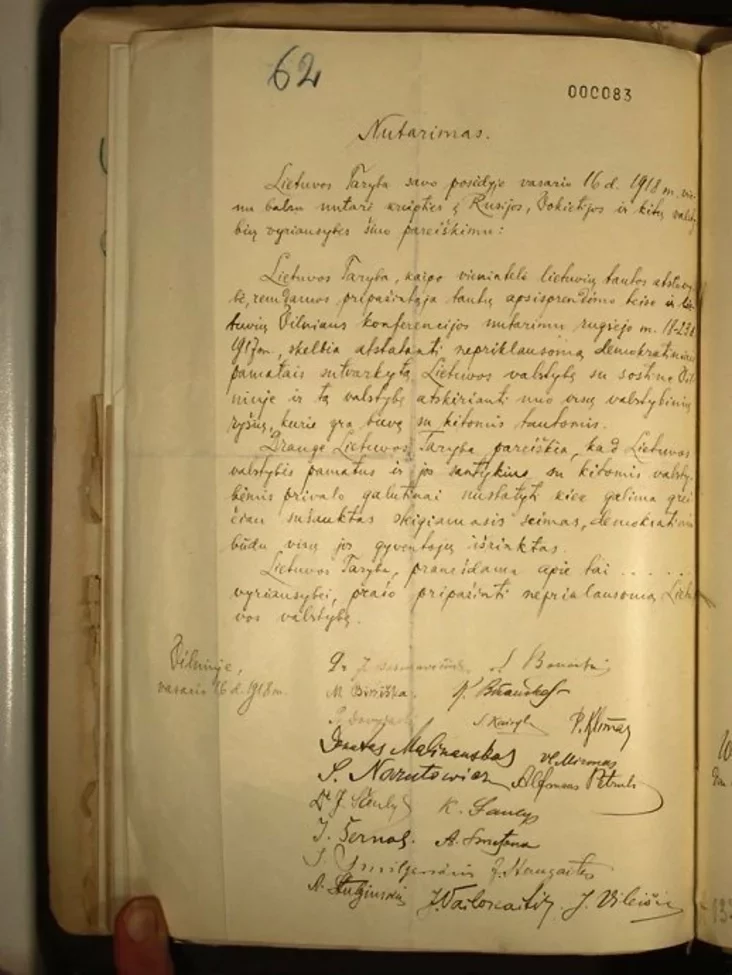 62
000083
Nutarimas.
Lietuvos Taryba savo posėdyje vasario 16 d. 1918 m. vie-
nu balsu nutarė kreiptis į Rusijos, Vokietijos ir kitų valsty-
bių vyriausybes šiuo pareiškimu:
Lietuvos Taryba, kaipo vienintelė lietuvių tautos atstovy-
bė, remdamos pripažintąja tautų apsisprendimo teise ir lie-
tuvių Vilniaus konferencijos nutarimu rugsėjo m. 18-23 d.
1917 m., skelbia atstatanti nepriklausomą demokratiniais
pamatais sutvarkytą Lietuvos valstybę su sostine Vil-
niuje ir tą valstybę atskirianti nuo visų valstybinių
ryšių, kurie yra buvę su kitomis tautomis.
Drauge Lietuvos Taryba pareiškia, kad Lietuvos
valstybės pamatus ir jos santykius su kitomis valsty-
bėmis privalo galutinai nustatyti kiek galima grei-
čiau sušauktas steigiamasis seimas, demokratiniu
būdu visų jos gyventojų išrinktas.
Lietuvos Taryba, pranešdama apie tai . . . . . .
vyriausybei, prašo pripažinti nepriklausomą Lietu-
vos valstybę.
Vilniuje,
vasario 16 d. 1918 m.
Dr J. Basanavičius S. Banaitis
M. Biržiška. K. Bizauskas
S. Kairys P. Klimas
Donatas Malinauskas Vl. Mironas
S. Narutowicz Alfonsas Petrulis
Dr J. Šaulys K. Šaulys
J. Šernas. A. Smetona
J. Smilgevičius J. Staugaitis
A. Stulginskis J. Vailokaitis J. Vileišis